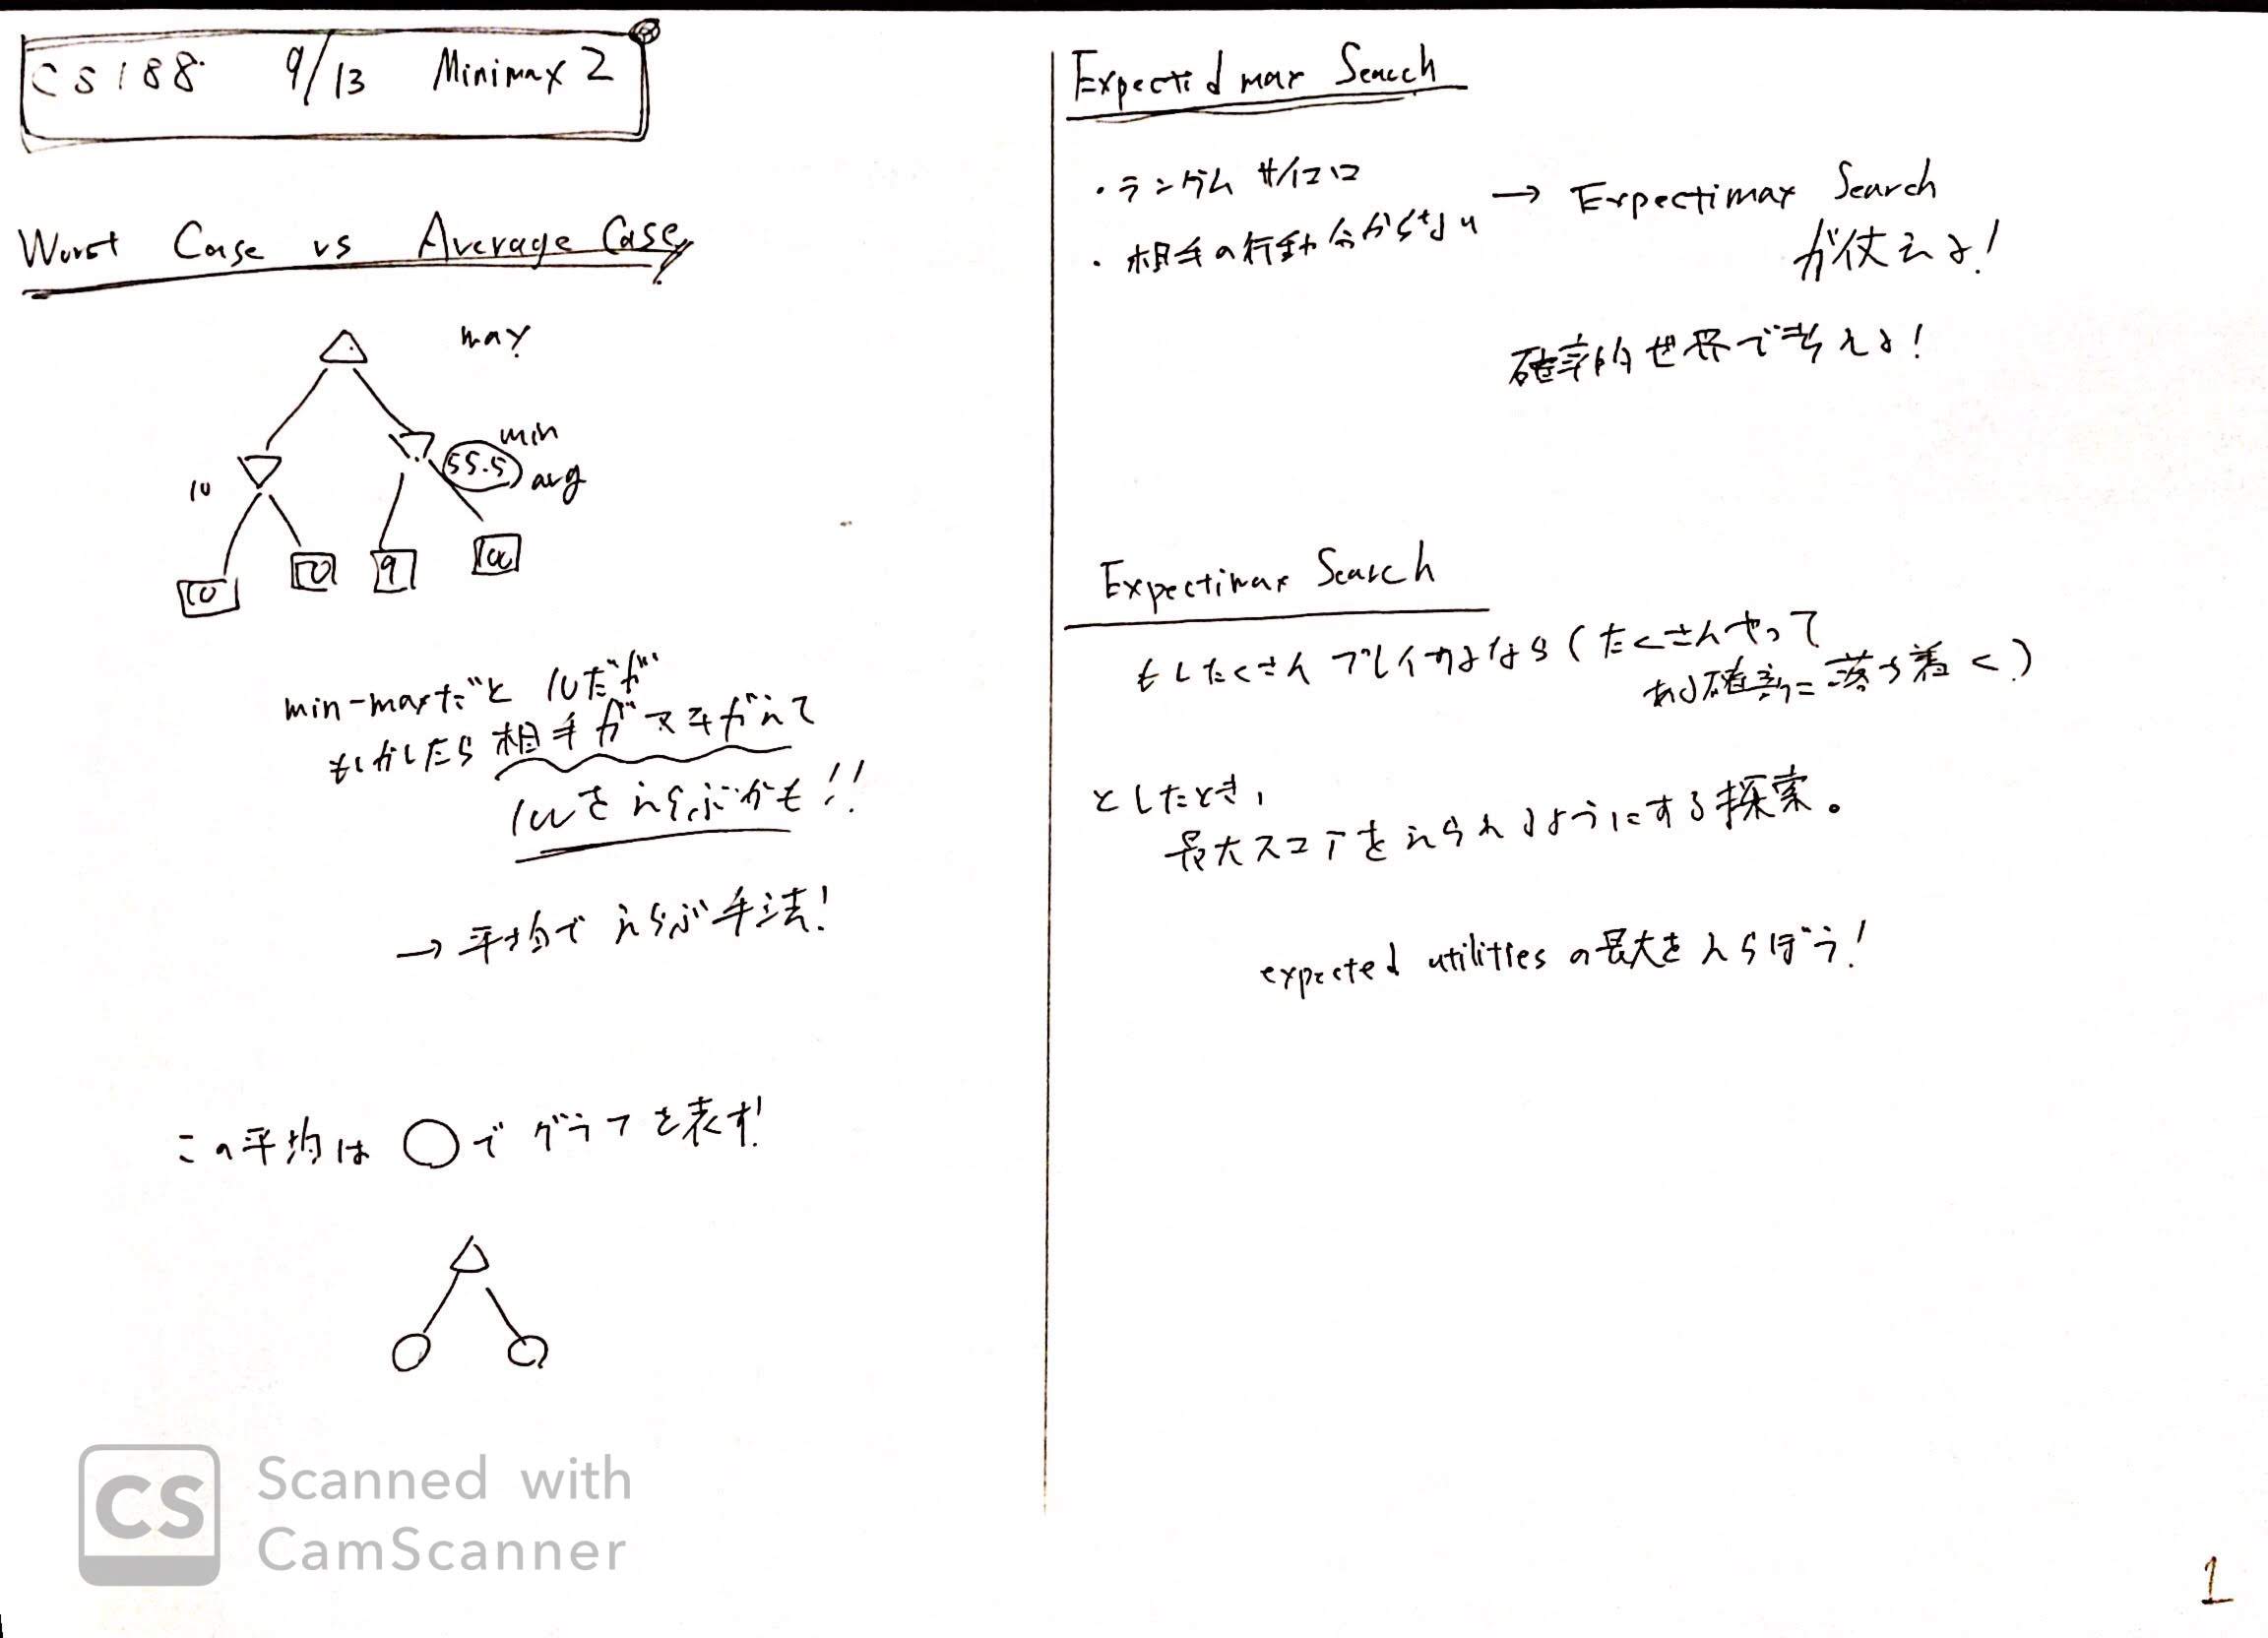 CS188 9/13 Minimax 2
Worst Case vs Average Case
max
min
55.5
avg
10
10
10
9
100
min-maxだと 10だが
もしかしたら 相手がマチガえて
100をえらぶかも!!
→ 平均で えらぶ手法!
この平均は ○で グラフを表す!
Expectid max Search
・ランダム サイコロ
・相手の行動分からない
→ Expectimax Search
が使える!
確率的世界で考える!
Expectimax Search
もしたくさん プレイするなら (たくさんやって
ある確率に落ち着く)
としたとき,
最大スコアをえられるようにする探索。
expected utilities の最大をえらぼう!
CS Scanned with
CamScanner
1